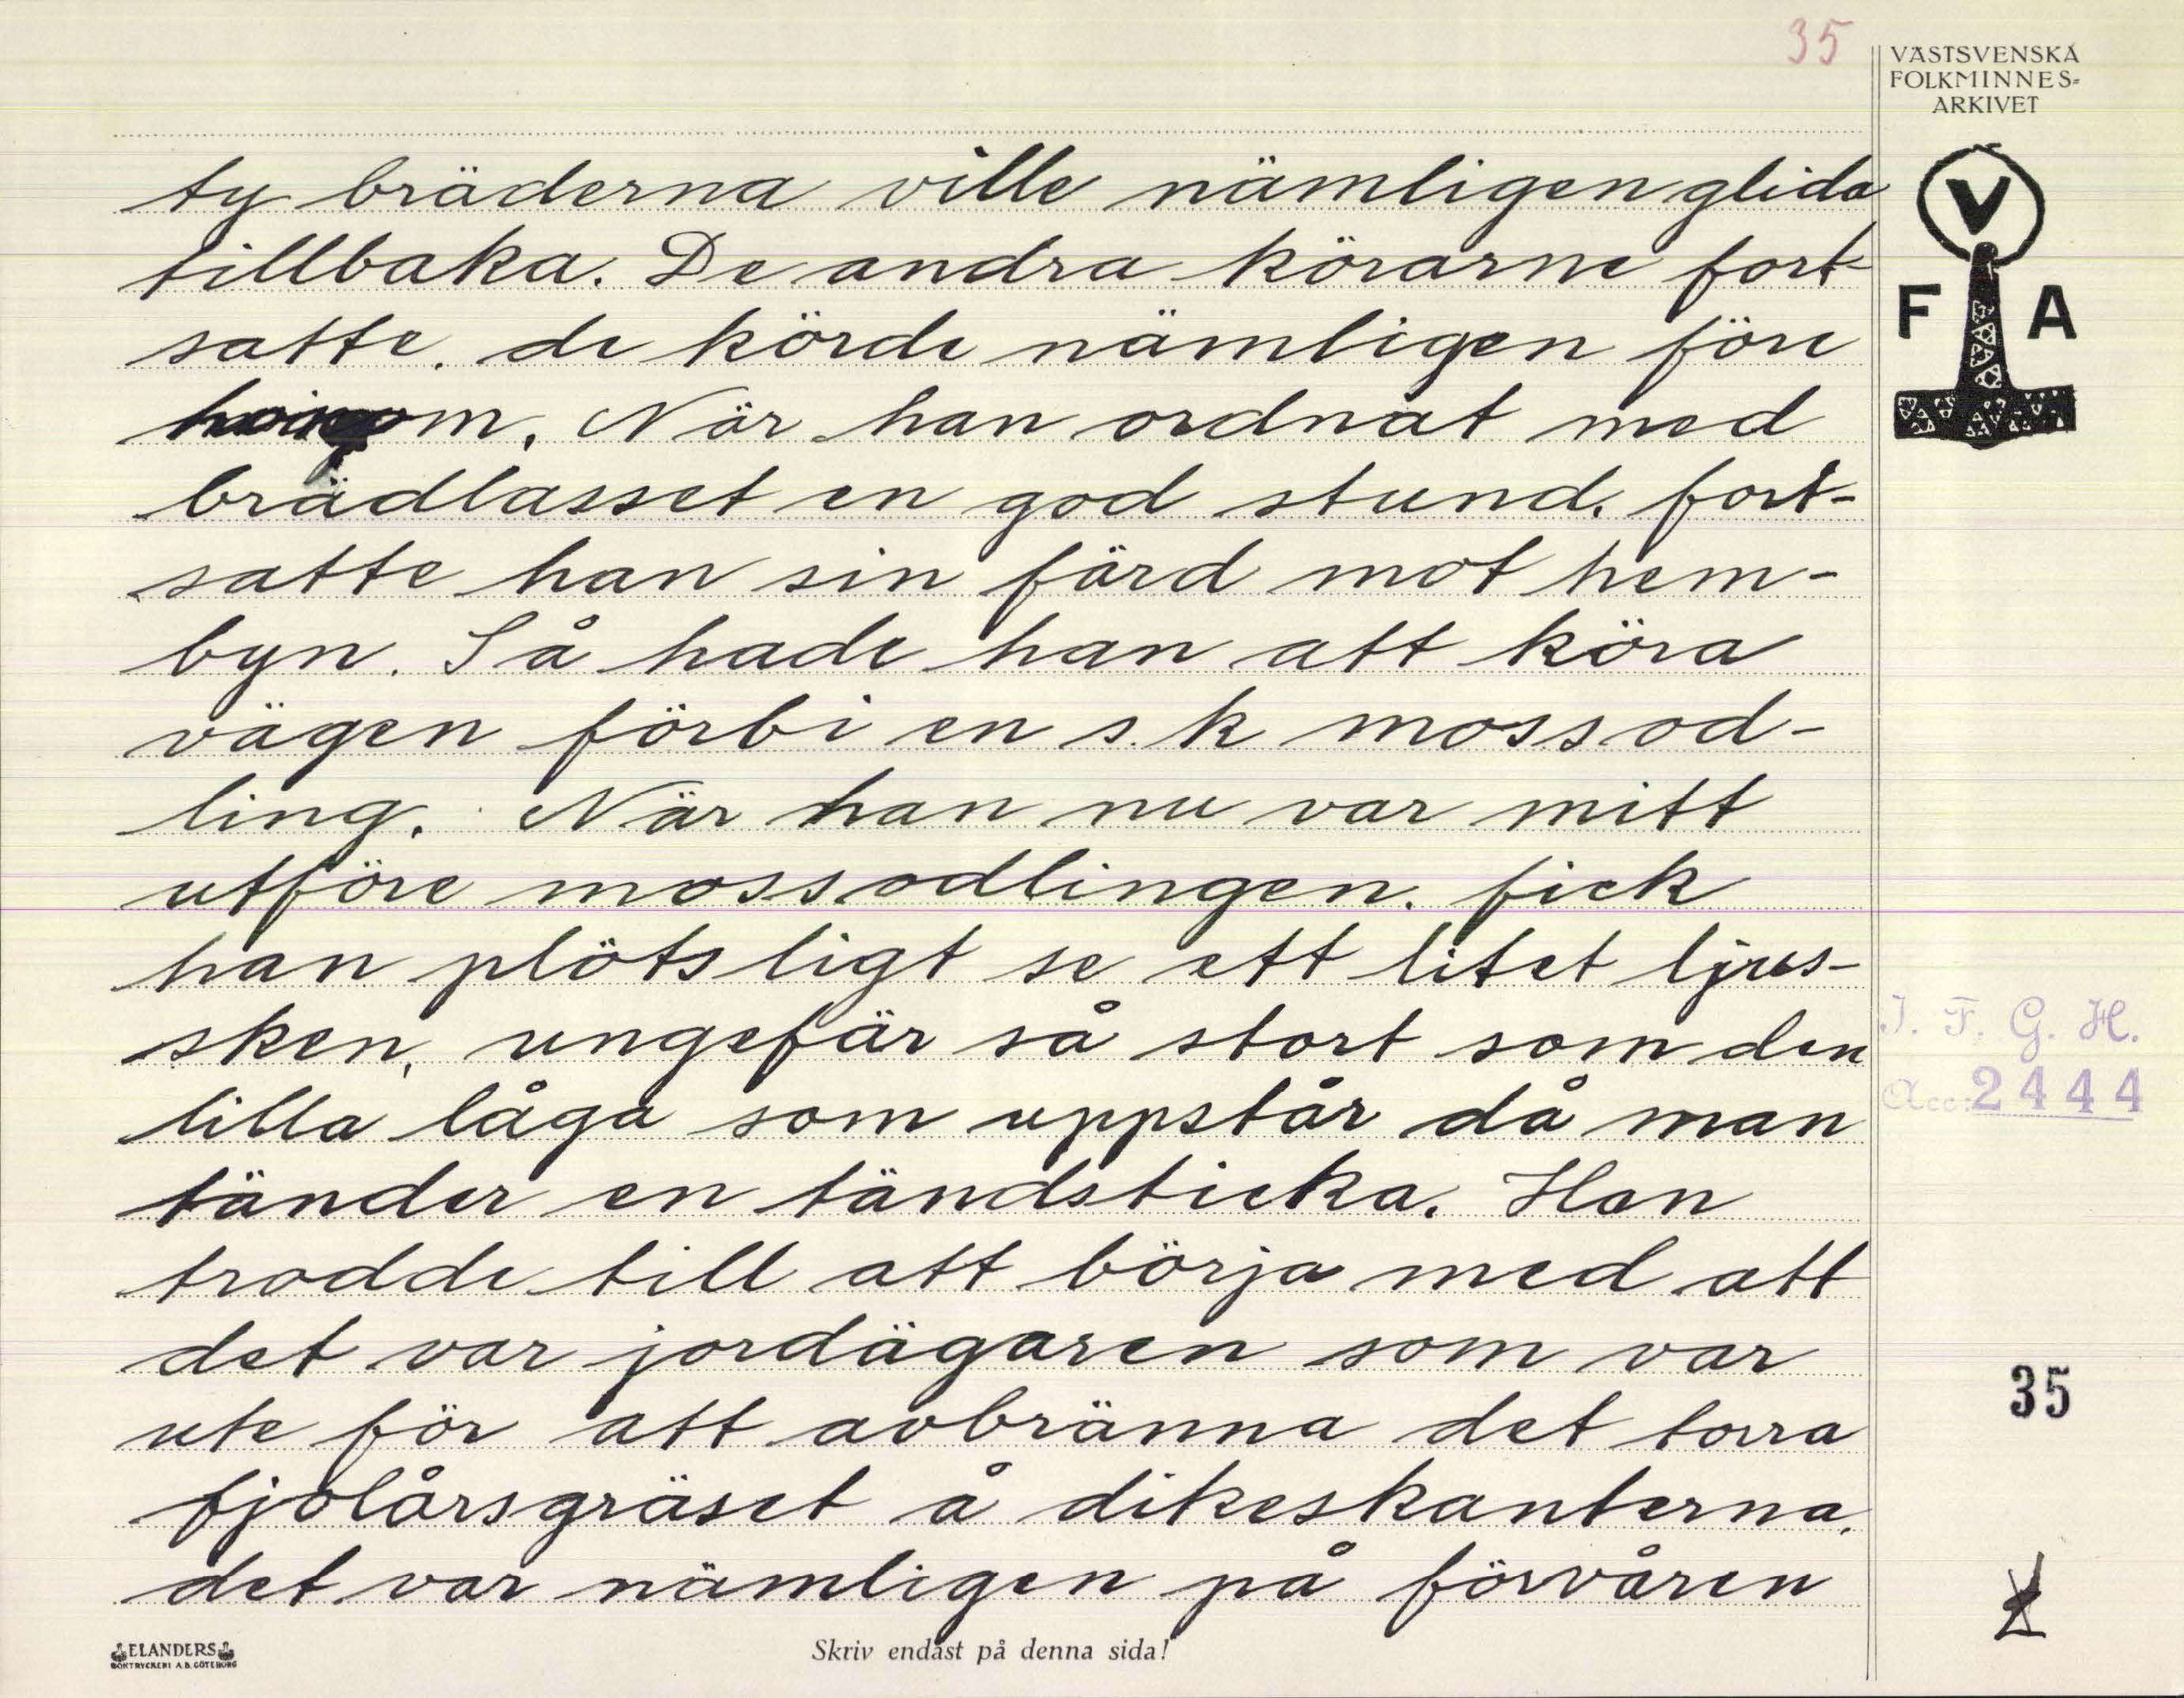 35
VÄSTSVENSKA
FOLKMINNES-
ARKIVET
V
F A
ty bräderna ville nämligen glida
tillbaka. De andra körarne fort
satte. de körde nämligen före
honom. När han ordnat med
brädlasset en god stund. fort-
satte han sin färd mot hem-
byn. Så hade han att köra
vägen förbi en s.k mossod-
ling. När han nu var mitt
utföre mossodlingen. fick
han plötsligt se ett litet ljus-
sken, ungefär så stort som den
lilla låga som uppstår då man
tänder en tändsticka. Han
trodde till att börja med att
det var jordägaren som var
ute för att avbränna det torra
fjolårsgräset å dikeskanterna.
det var nämligen på förvåren
I. F. G. H.
Acc. 2444
35
ELANDERS
BOKTRYCKERI A.B. GÖTEBORG
Skriv endast på denna sida!